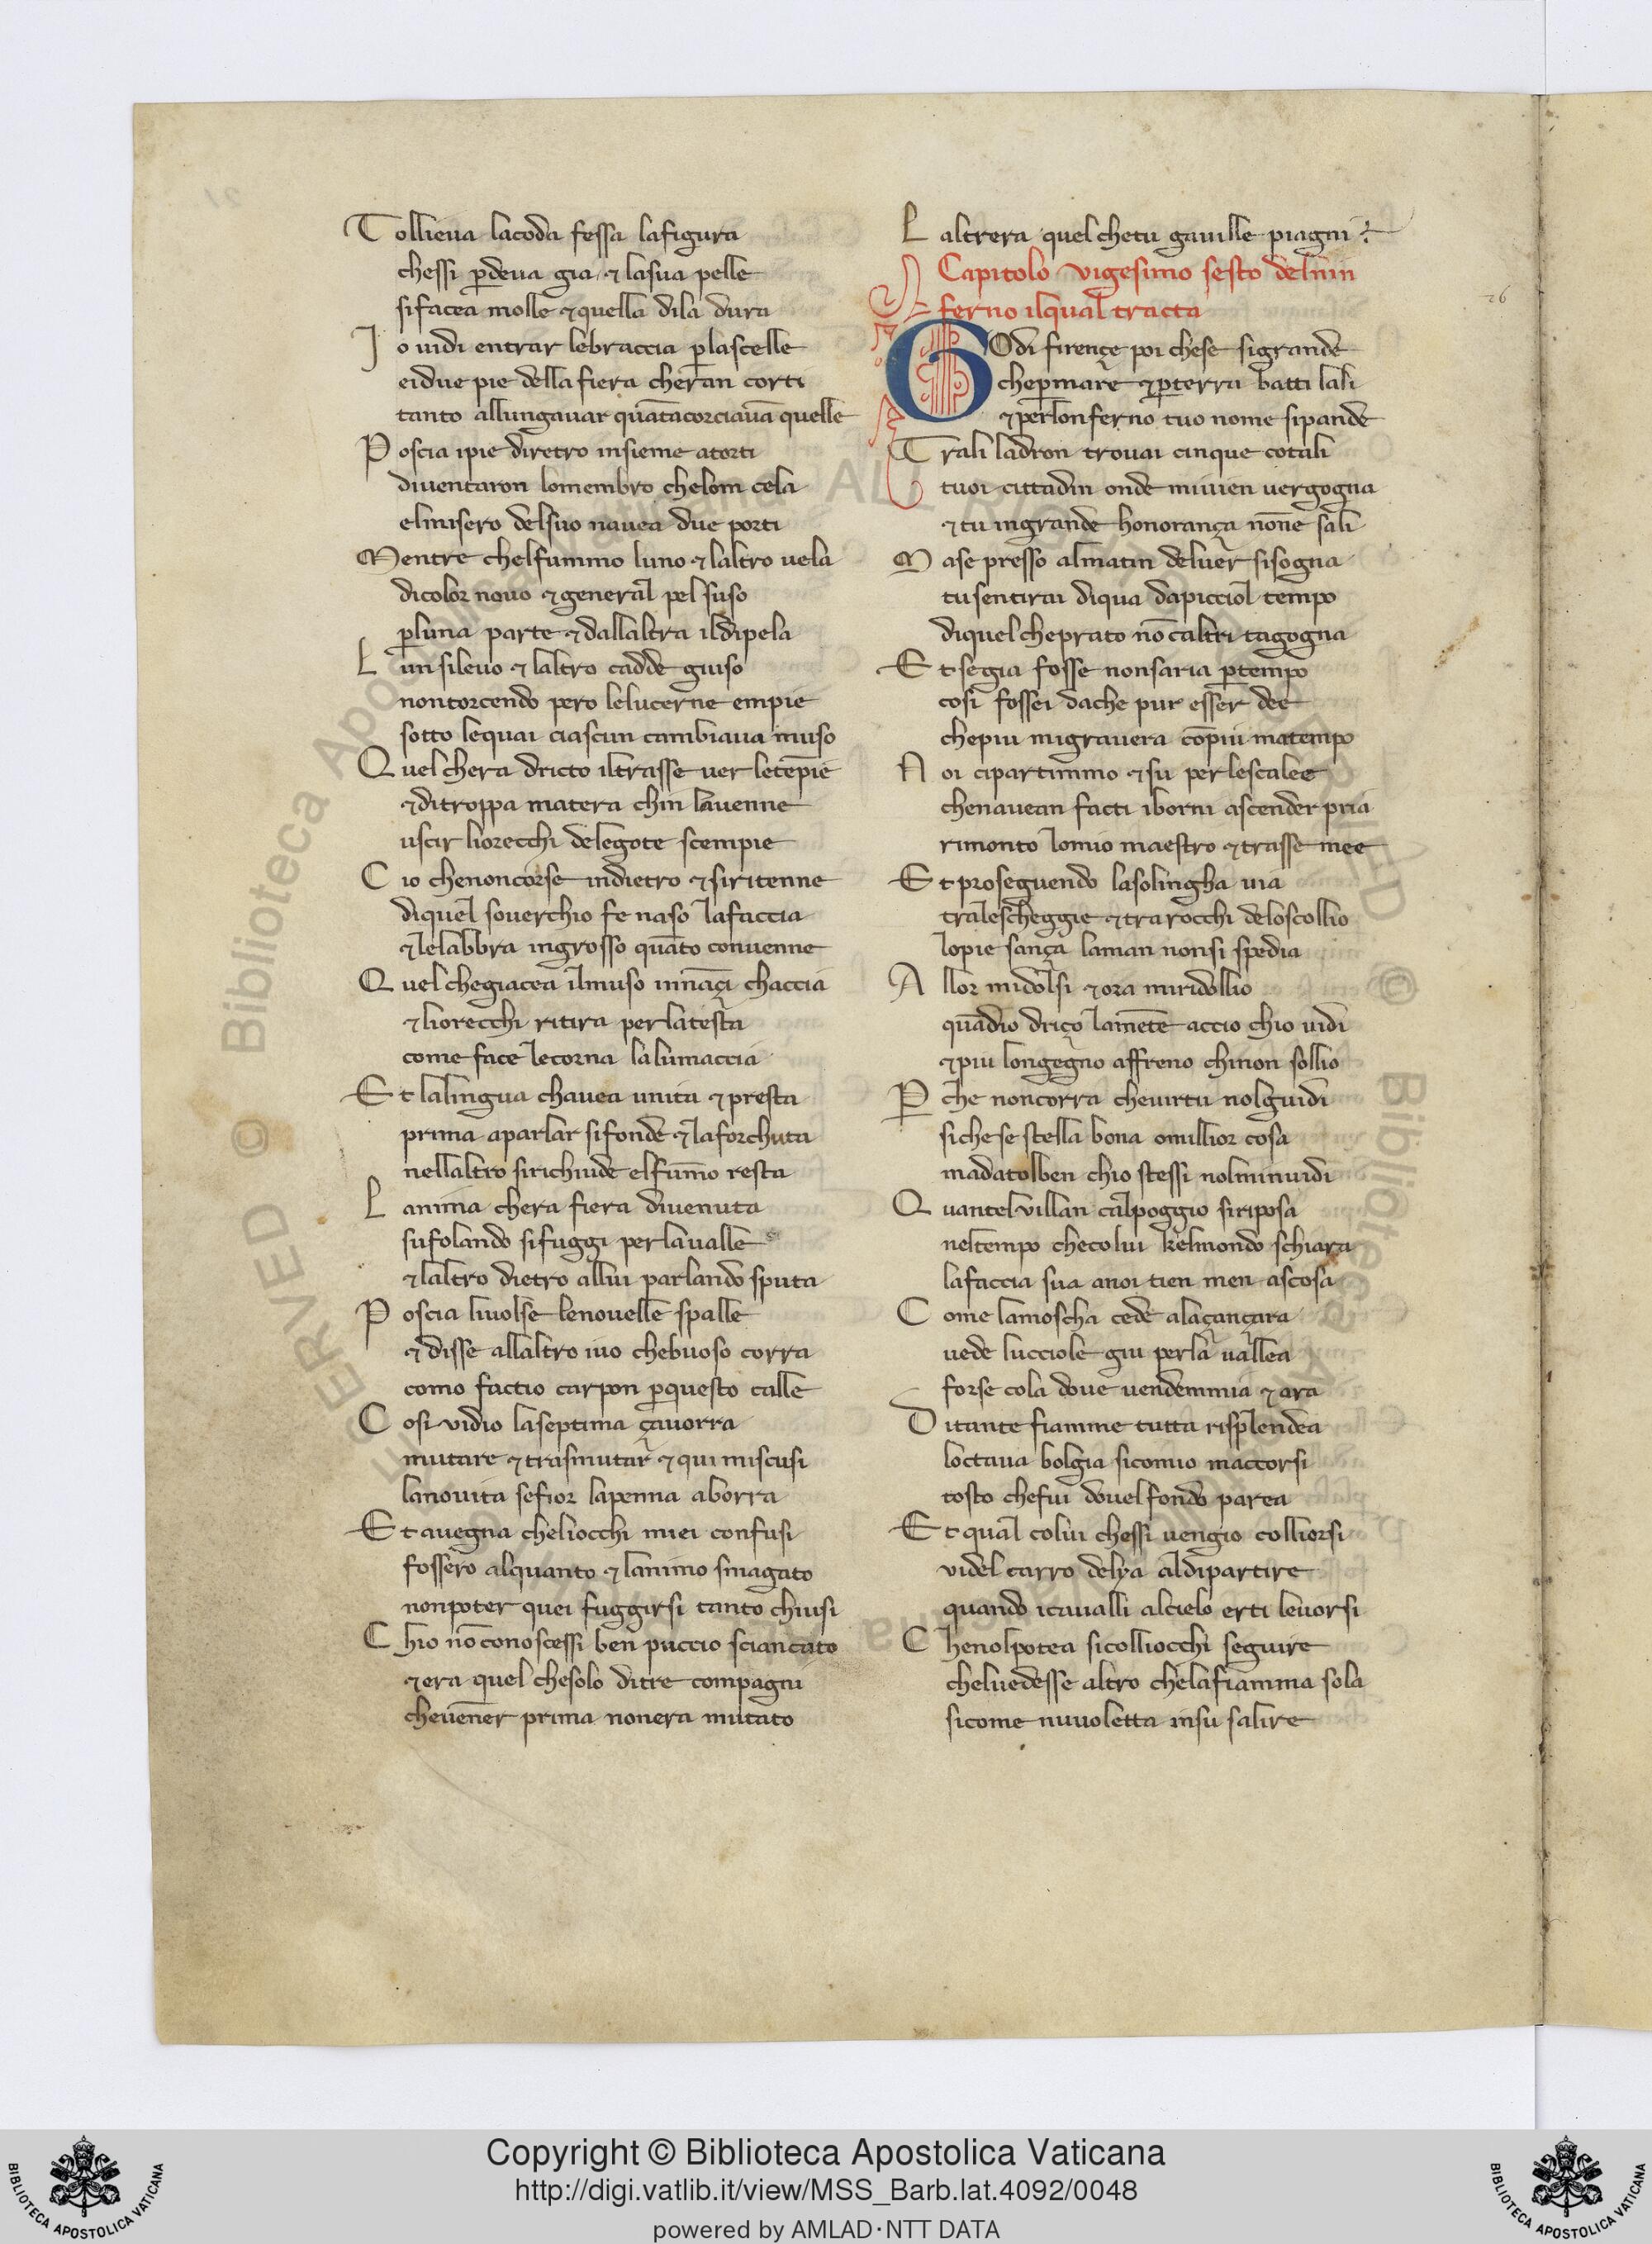 Tollieua lacoda fessa lafigura
chessi ꝑdeua gia ⁊ lasua pelle
sifacea molle ⁊quella dila dura
Io uidi entrar lebraccia ꝑlascelle
eidue pie della fiera cheran corti
tanto allungauar quātacorciauā quelle
Poscia ipie diretro insieme atorti
diuentaron lomembro chelom cela
elmisero delsuo nauea due porti
Mentre chelfummo luno ⁊laltro uela
dicolor nouo ⁊general pel suso
ꝑluna parte ⁊dallaltra ildipela
Lun sileuo ⁊ laltro cadde giuso
nontorcendo pero lelucerne empie
sotto lequai ciascun cambiaua muso
Quel chera dricto iltrasse uer letēpie
⁊ditroppa matera chin lauenne
uscir liorecchi delegote scempie
Cio chenoncorse indietro ⁊siritenne
diquel souerchio fe naso lafaccia
⁊lelabbra ingrosso quāto conuenne
Quel chegiacea ilmuso innāçi chaccia
⁊liorecchi ritira perlatesta
come face lecorna lalumaccia
Et lalingua chauea unita ⁊ presta
prima aparlar sifonde ⁊laforchuta
nellaltro sirichiude elfum̄o resta
Lanima chera fiera diuenuta
sufolando sifuggi perlaualle
⁊laltro dietro allui parlando sputa
Poscia liuolse lenouelle spalle
⁊disse allaltro iuo chebuoso corra
como factio carpon ꝑquesto calle
Cosi uidio laseptima çauorra
mutare ⁊trasmutar ⁊ qui miscusi
lanouita sefior lapenna aborra
Et auegna cheliocchi miei confusi
fossero alquanto ⁊ lanimo smagato
nonpoter quei fuggirsi tanto chiusi
Chio nō conoscessi ben puccio sciancato
⁊era quel chesolo ditre compagni
cheuēner prima nonera mutato
Laltrera quel chetu gauille piagni
Capitolo vigesimo sesto delnin
ferno ilqual tracta
GOdi firençe poi chese sigrande
cheꝑmare ⁊ꝑterra batti lali
⁊perlonferno tuo nome sipande
Trali ladron trouai cinque cotali
tuoi cittadin onde miuien uergogna
⁊tu ingrande honorança nōne sali
Mase presso almatin deluer sisogna
tusentirai diqua dapicciol tempo
diquel cheprato nō caltri tagogna
Et segia fosse nonsaria ꝑtempo
cosi fossei dache pur esser dee
chepiu migrauera cōpiu matempo
Noi cipartimmo ⁊su perlescalee
chenauean facti iborni ascender pria
rimonto lomio maestro ⁊trasse mee
Et proseguendo lasolingha uia
tralescheggie ⁊tra rocchi deloscollio
lopie sança laman nonsi spedia
Allor midolsi ⁊ora miridollio
quādio driço lamēte accio chio uidi
⁊piu longegno affreno chinon sollio
Ꝑche noncorra cheuirtu nolguidi
sichese stella bona omillior cosa
madatolben chio stessi nolminuidi
Quantel villan calpoggio siriposa
neltempo checolui kelmondo schiara
lafaccia sua anoi tien men ascosa
Come lamoscha cede alaçançara
uede lucciole giu perla uallea
forse cola doue uendemmia ⁊ ara
Ditante fiamme tutta risplendea
loctaua bolgia sicomio maccorsi
tosto chefui douelfondo parea
Et qual colui chessi uengio colliorsi
videl carro delya aldipartire
quando icaualli alcielo erti leuorsi
Chenolpotea sicolliocchi seguire
cheluedesse altro chelafiamma sola
sicome nuuoletta insu salire
26
Copyright © Biblioteca Apostolica Vaticana
http://digi.vatlib.it/view/MSS_Barb.lat.4092/0048
powered by AMLAD·NTT DATA
BIBLIOTECA APOSTOLICA VATICANA
BIBLIOTECA APOSTOLICA VATICANA